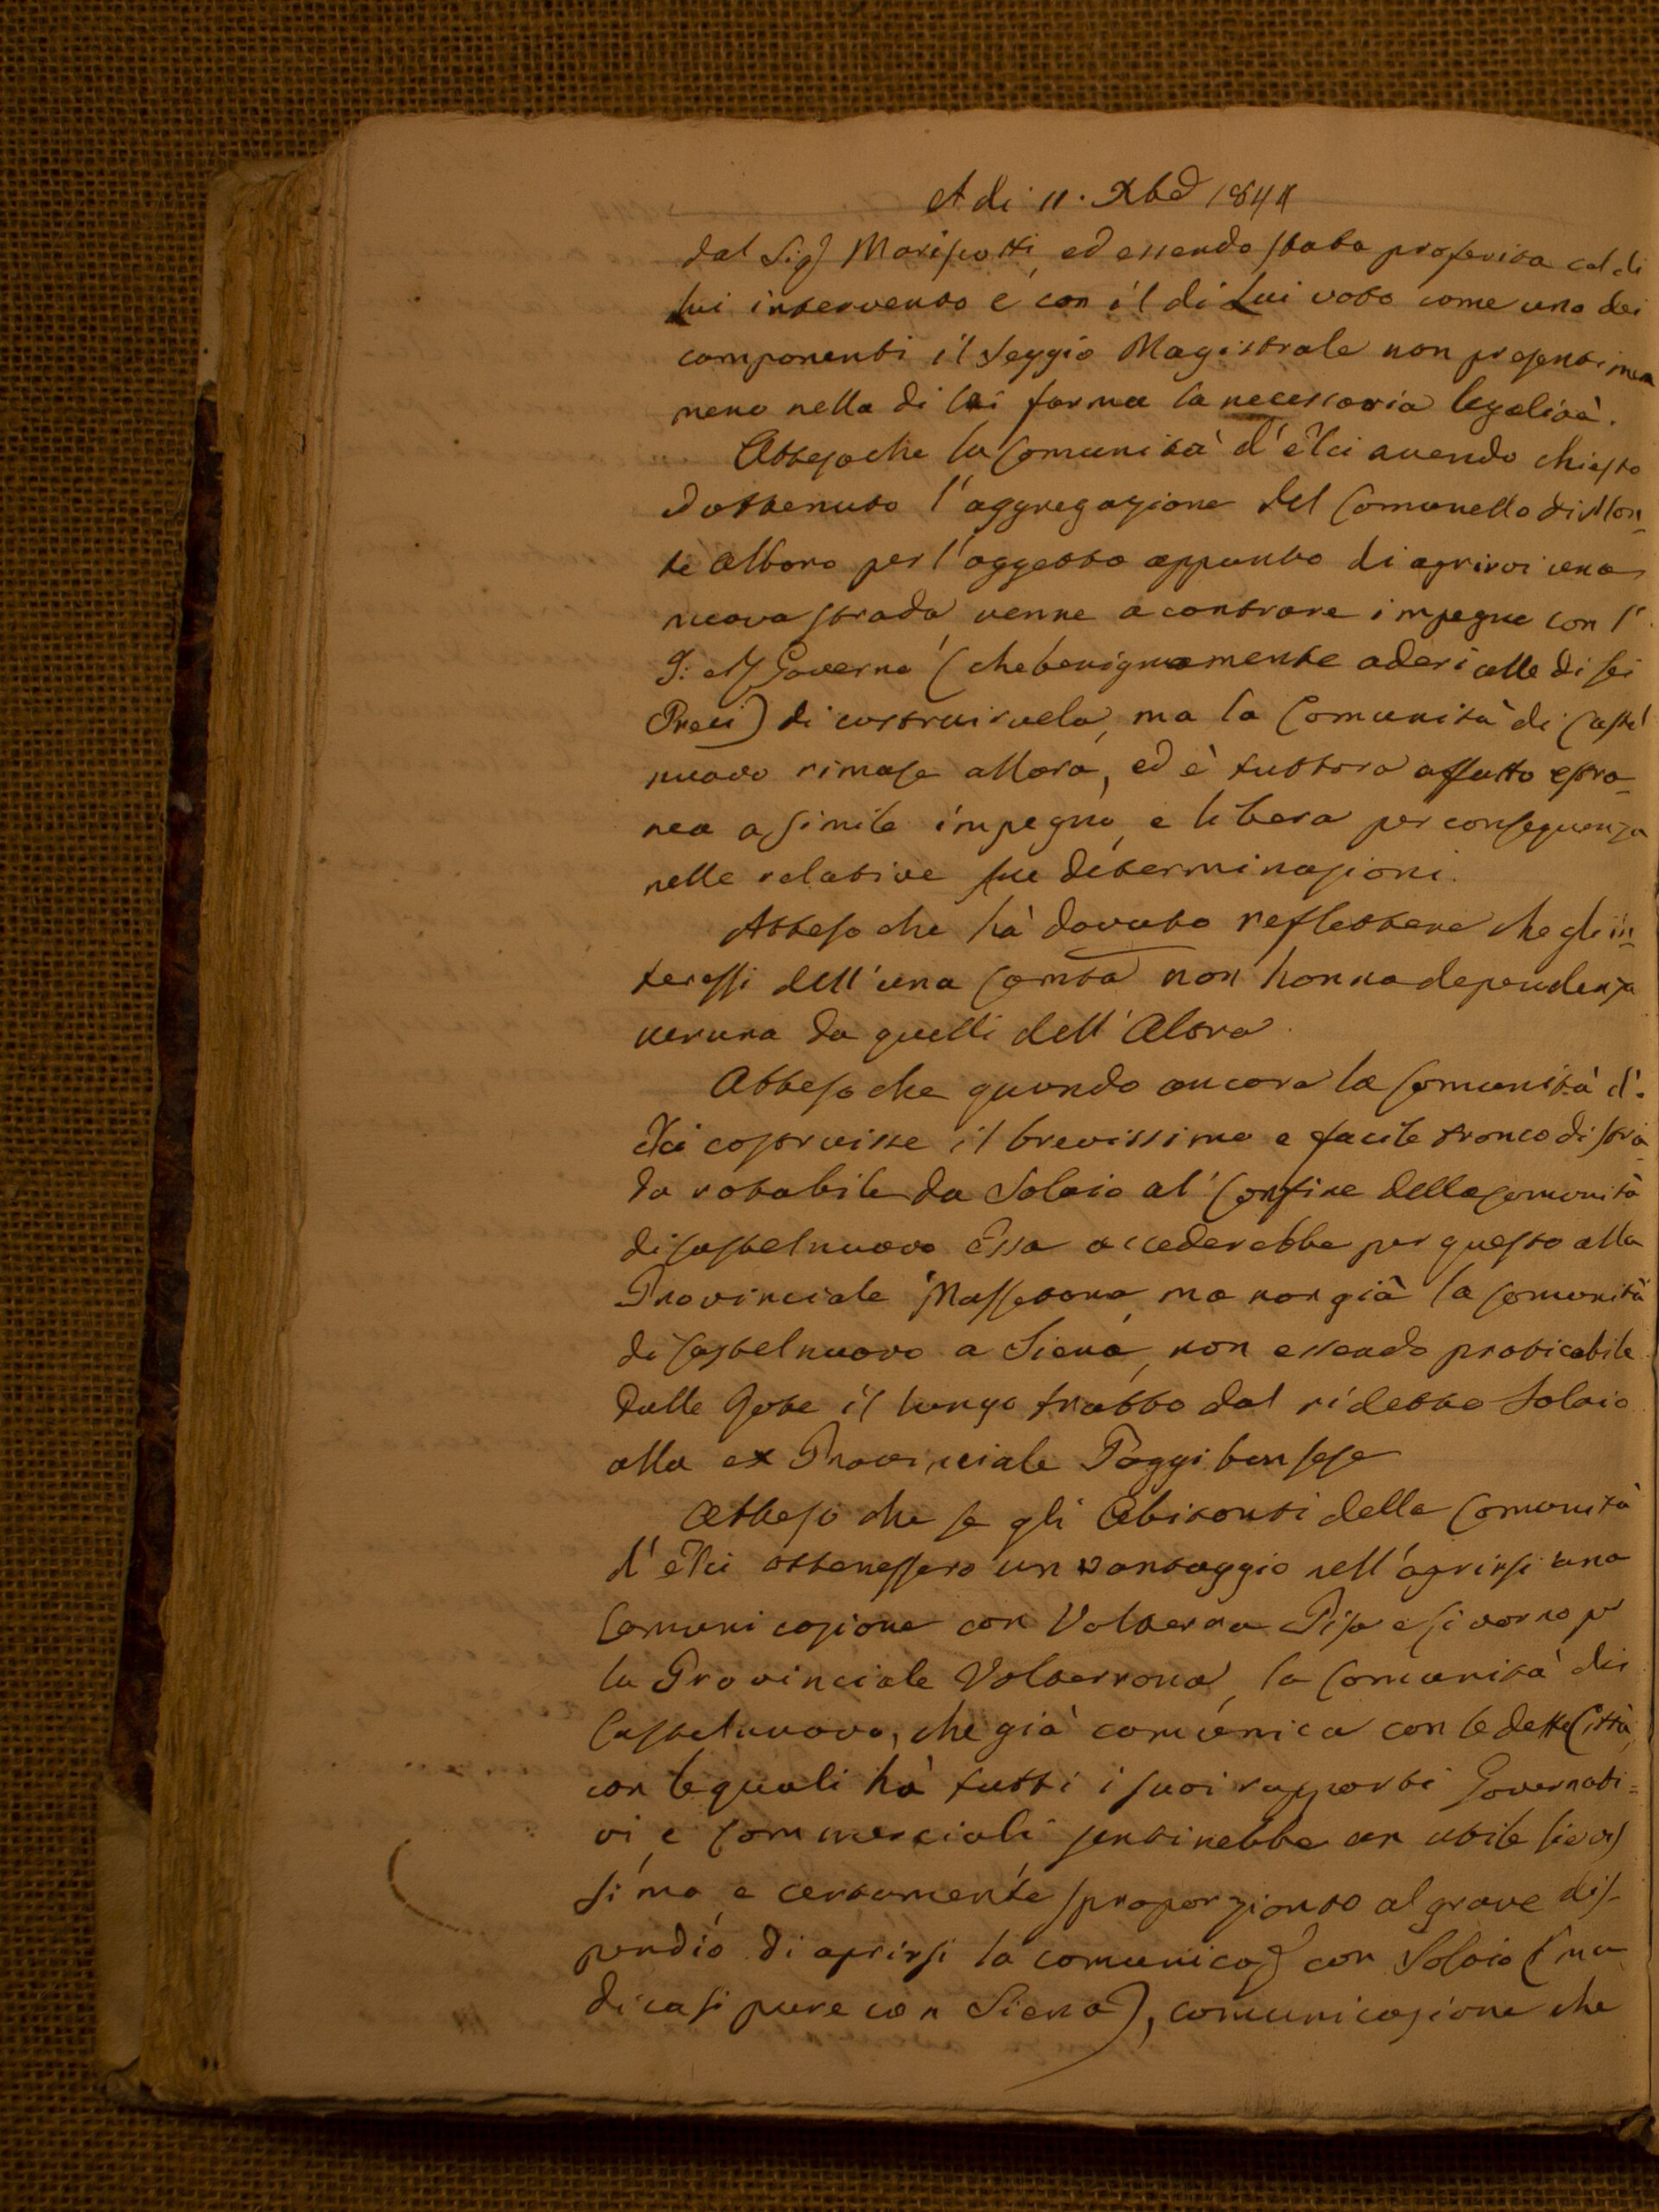 A di 11. Xbe 1844
dal Sig Mariscotti, ed essendo stata proferita col di
lui intervento e con il di Lui voto come uno dei
componenti il Seggio Magistrale non presenti nem
meno nella di lei forma la necessaria legalità.
Atteso che la Comunità d'Elci avendo chiesto
ed ottenuto l'aggregazione del Comunello di Mon-
te Alboro per l'oggetto appunto di aprirvi una
nuova strada venne a contrare impegno con l'
I. e R. Governo (che benignamente aderì alle di lei
Preci) di costruirvela, ma la Comunità di Castel
nuovo rimase allora, ed è tuttora affatto estra-
nea a simile impegno, e libera per conseguenza
nelle relative sue determinazioni.
Atteso che hà dovuto reflettere che gli in-
teressi dell'una Comtà non hanno dependenza
veruna da quelli dell'Altra.
Atteso che quando ancora la Comunità d'
Elci costruisse il brevissimo e facile tronco di stra-
da rotabile da Solaio al Confine della Comunità
di Castelnuovo Essa accederebbe per questo alla
Provinciale Massetana, ma non già la Comunità
di Castelnuovo a Siena, non essendo praticabile
dalle Gote il lungo tratto dal ridetto Solaio
alla ex Provinciale Poggibonsese
Atteso che se gli Abitanti della Comunità
d'Elci ottenessero un vantaggio nell'aprirsi una
Comunicazione con Volterra Pisa e Livorno p
la Provinciale Volterrana, la Comunità di
Castelnuovo, che già comunica con le dette Città,
con le quali hà tutti i suoi rapporti Governati=
vi, e Commerciali sentirebbe un utile lievis
simo, e certamente sproporzionato al grave dis-
pendio di aprirsi la comunicaz con Solaio (ma
dicasi pure con Siena), comunicazione che